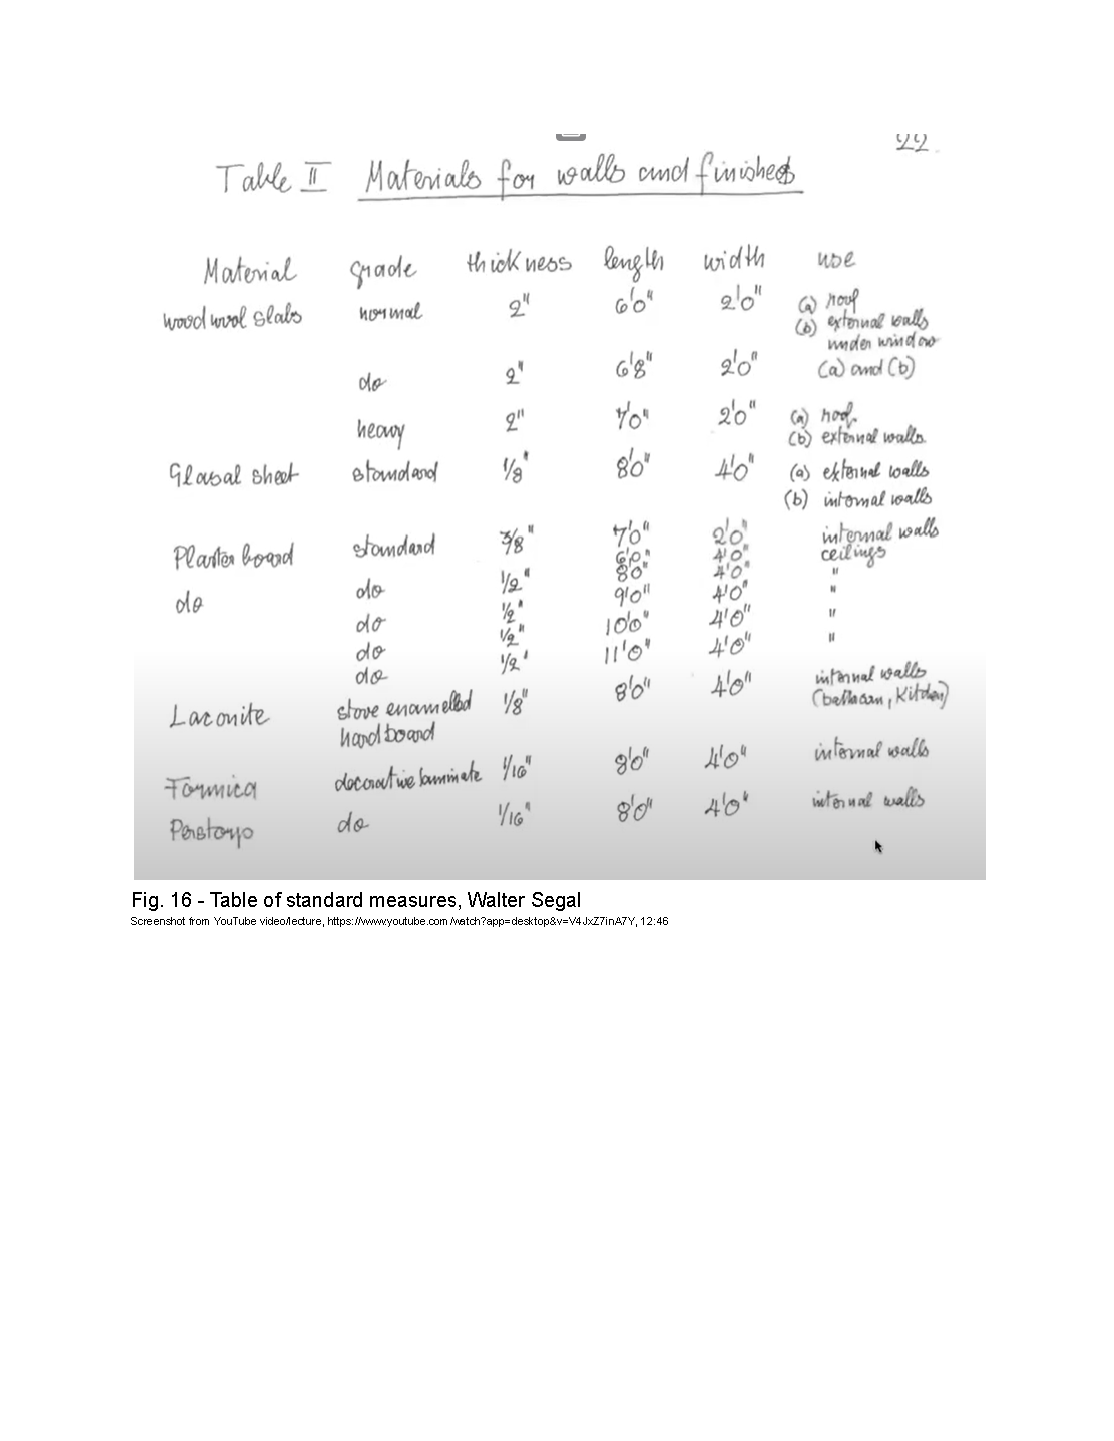 22
Table II Materials for walls and finishes
Material grade thickness length width use
wood wool slabs normal 2" 6'0" 2'0" (a) roof
(b) external walls
under window
do 2" 6'8" 2'0" (a) and (b)
heavy 2" 7'0" 2'0" (a) roof
(b) external walls.
Glasal sheet standard 1/8" 8'0" 4'0" (a) external walls
(b) internal walls
Plaster board standard 3/8" 7'0" 2'0" internal walls
6'0" 4'0" ceilings
do do 1/2" 8'0" 4'0" "
do 1/2" 9'0" 4'0" "
do 1/2" 10'0" 4'0" "
do 1/2" 11'0" 4'0" "
Laconite stove enamelled 1/8" 8'0" 4'0" internal walls
hardboard (bathroom, Kitchen)
Formica decorative laminate 1/16" 8'0" 4'0" internal walls
Perstorp do 1/16" 8'0" 4'0" internal walls
Fig. 16 - Table of standard measures, Walter Segal
Screenshot from YouTube video/lecture, https://www.youtube.com/watch?app=desktop&v=V4JxZ7inA7Y, 12:46